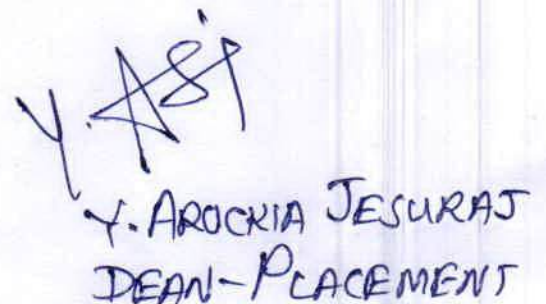 Y. ASJ
Y. AROCKIA JESURAJ
DEAN-PLACEMENT